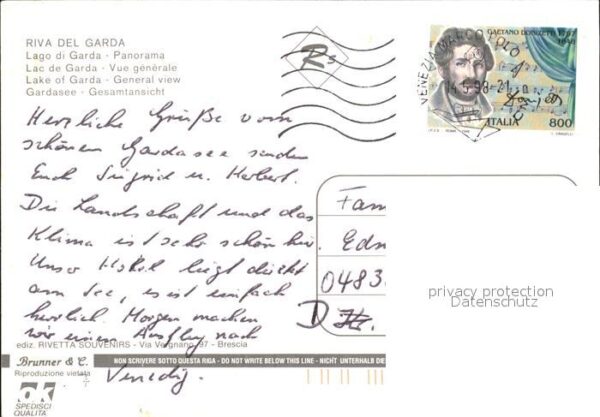 RIVA DEL GARDA
Lago di Garda - Panorama
Lac de Garda - Vue générale
Lake of Garda - General view
Gardasee - Gesamtansicht
Herzliche Grüße vom
schönen Gardasee senden
Euch Sigrid u. Herbert.
Die Landschaft und das
Klima ist sehr schön hier.
Unser Hotel liegt direkt
am See, es ist einfach
herrlich. Morgen machen
wir einen Ausflug nach
Venedig.
ediz. RIVETTA SOUVENIRS - Via Vergnano, 97 - Brescia
Brunner & C.
Riproduzione vietata
ok
SPEDISCI
QUALITÀ
NON SCRIVERE SOTTO QUESTA RIGA - DO NOT WRITE BELOW THIS LINE - NICHT UNTERHALB DIE
GAETANO DONIZETTI 1797
1848
VENEZIA MARCO POLO
14 5 98-21
ITALIA 800
Fam
Edn
0483
D
privacy protection
Datenschutz